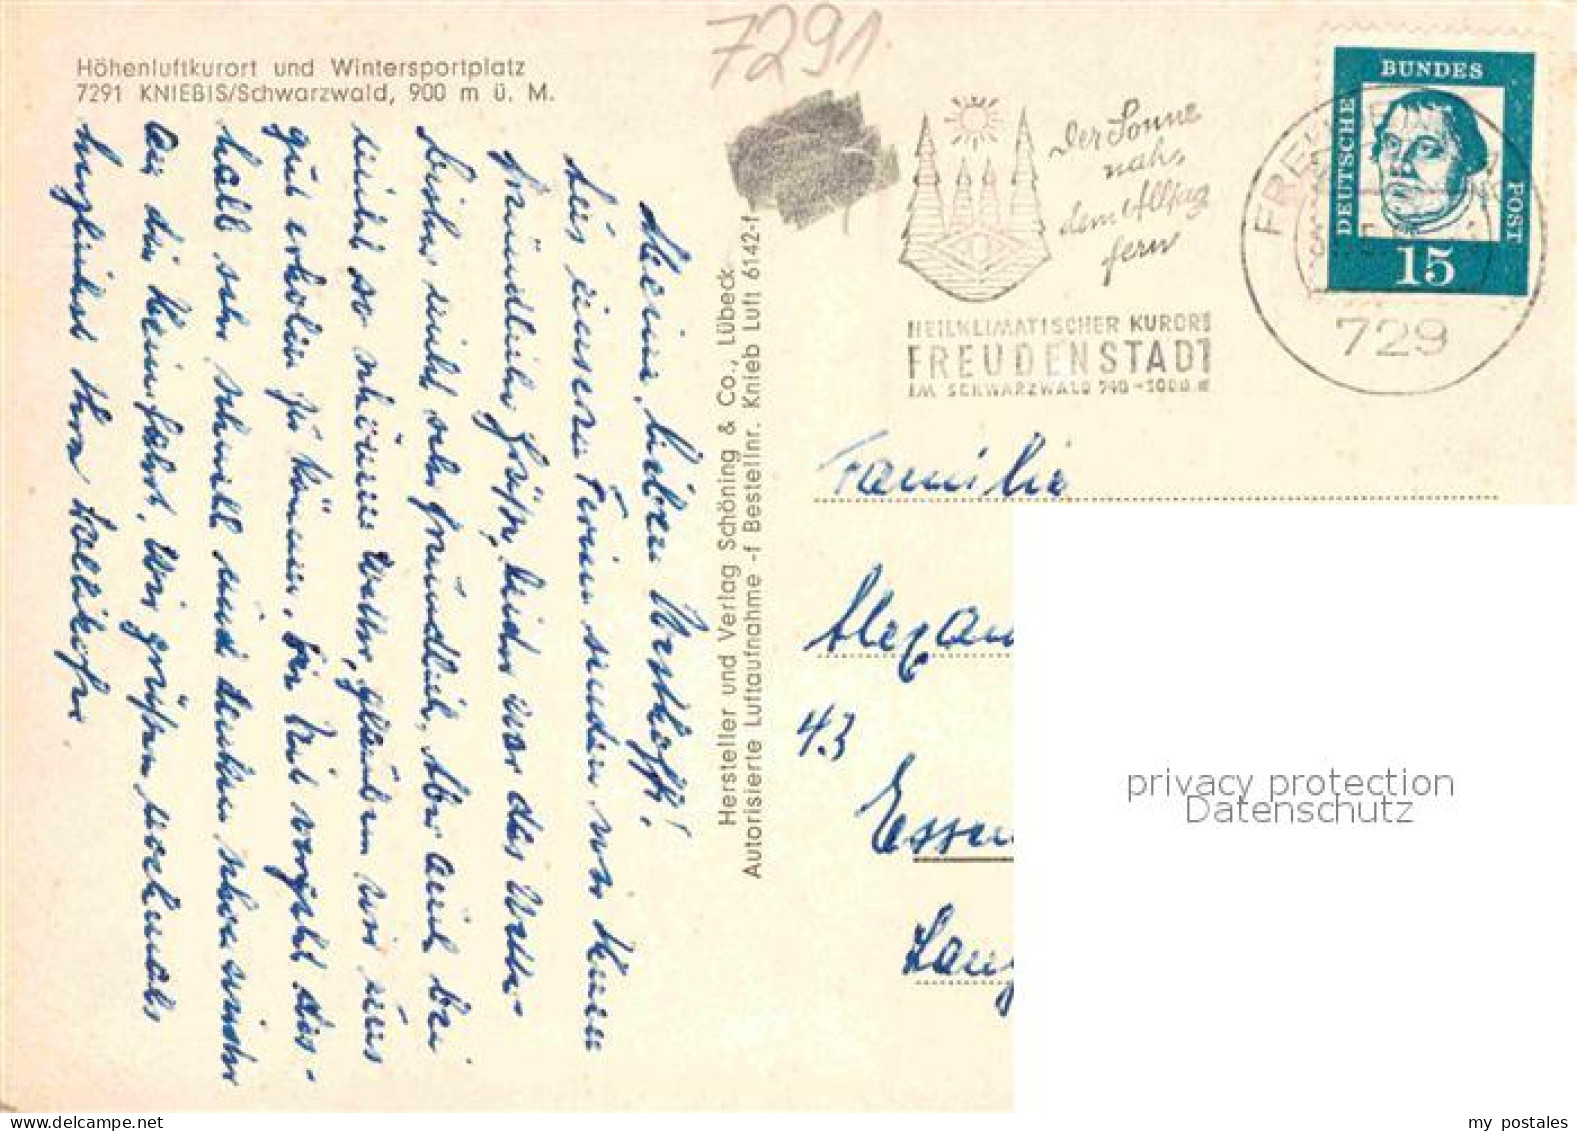 7291
Höhenluftkurort und Wintersportplatz
7291 KNIEBIS/Schwarzwald, 900 m ü. M.
Meine lieben Westhoffs!
Aus unseren Ferien senden wir Ihnen
freundliche Grüße, leider war das Wetter
bisher nicht sehr freundlich. Aber auch bei
nicht so schönem Wetter, glauben wir uns
gut erholen zu können. Die Zeit vergeht des-
halb sehr schnell und denken schon wieder
an die Heimfahrt. Wir grüßen nochmals
herzlichst Ihre
Hersteller und Verlag Schöning & Co., Lübeck
Autorisierte Luftaufnahme -f Bestellnr. Knieb Luft 6142-f
Der Sonne
nah,
dem Alltag
fern
HEILKLIMATISCHER KURORT
FREUDENSTADT
IM SCHWARZWALD 740-1000 M
729
BUNDES
DEUTSCHE
POST
15
Familie
Alexan
43
Essen
privacy protection
Datenschutz
my postales